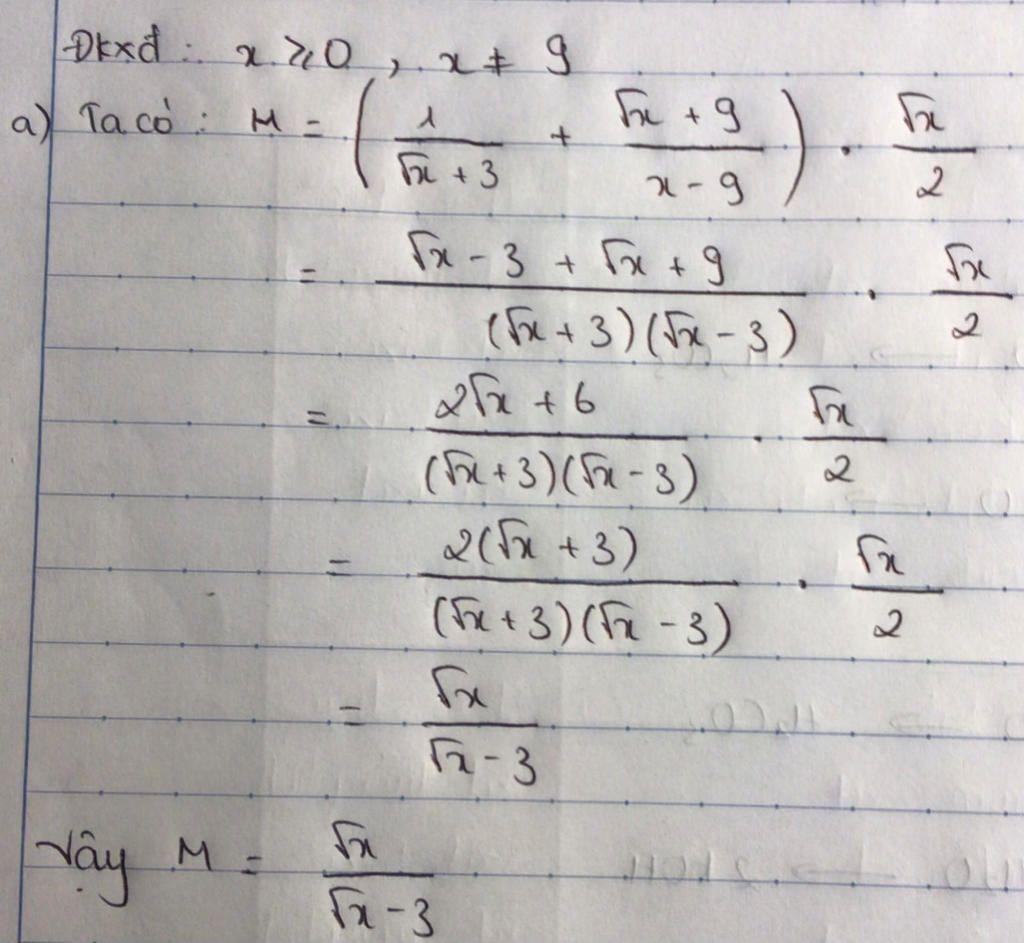 Đkxđ: x ≥ 0, x ≠ 9
a) Ta có: M = (1/(√x + 3) + (√x + 9)/(x - 9)) . √x/2
= (√x - 3 + √x + 9)/((√x + 3)(√x - 3)) . √x/2
= (2√x + 6)/((√x + 3)(√x - 3)) . √x/2
= 2(√x + 3)/((√x + 3)(√x - 3)) . √x/2
= √x/(√x - 3)
Vậy M = √x/(√x - 3)